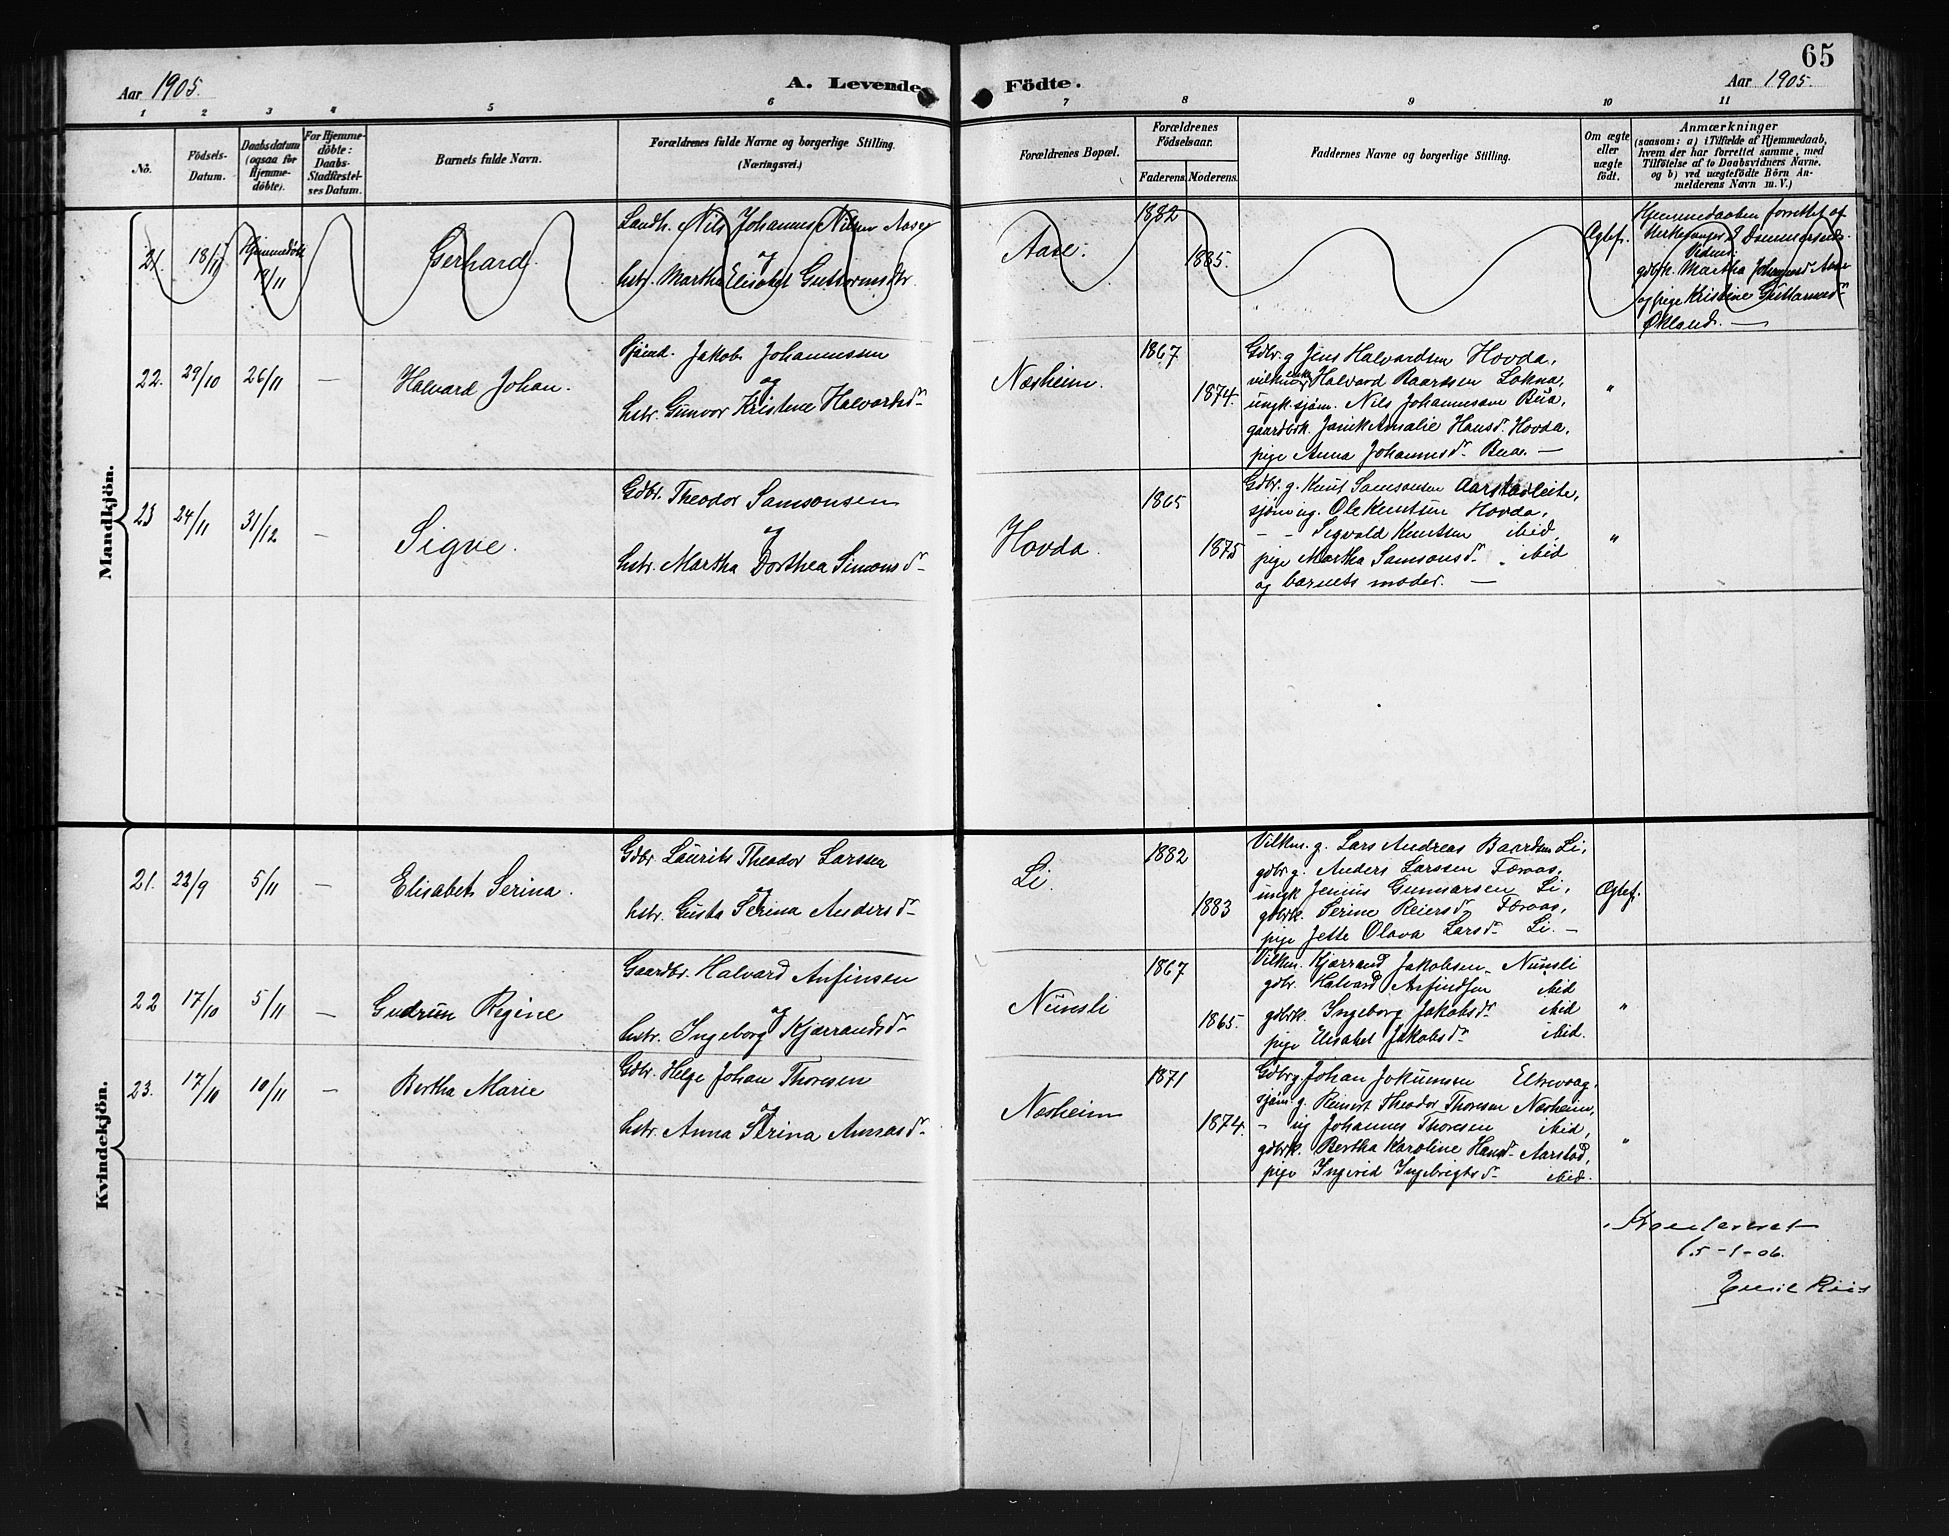 65
Aar 1905.
A. Levende
Födte.
Aar 1905.
1 2 3 4 5 6 7 8 9 10 11
No.
Födsels-
Datum.
Daabsdatum
(ogsaa for
Hjemme-
döbte).
For Hjemme-
döbte:
Daabs-
Stadfæstel-
ses Datum.
Barnets fulde Navn.
Forældrenes fulde Navne og borgerlige Stilling.
(Næringsvei.)
Forældrenes Bopæl.
Forældrenes
Födselsaar.
Faderens. Moderens.
Faddernes Navne og borgerlige Stilling.
Om ægte
eller
uægte
födt.
Anmærkninger
(saasom: a) i Tilfælde af Hjemmedaab,
hvem der har forrettet samme, med
Tilföielse af to Daabsvidners Navne.
og b) ved uægtefödte Börn An-
melderens Navn m. V.)
Mandkjön.
21. 18/11 Hjemmedöbt
18/11
Gerhard.
Landh. Nils Johannes Nilsen Aase
og
hstr. Martha Elisabet Guttormsdr.
Aase.
1882
1885.
Ægtef.
Hjemmedaaben forrettet af
Kirkesanger Dommersnes.
Vidner
gdbrk. Martha Johannesd. Aase
og pige Kristine Guttormsdr
Økland. —
22. 29/10 26/11 —
Halvard Johan.
Sjömd. Jakob Johannessen
og
hstr. Gunvor Kristine Halvardsdr
Næsheim.
1867
1874.
Gdbr. g. Jens Halvardsen Hovda,
vilkm. enkm Halvard Baardsen Lokna,
ungk. sjöm. Nils Johannessen Bua,
gaardbrk. Janik Amalie Hansd. Hovda,
pige Anna Johannesdr Bua. —
"
23 24/11 31/12 —
Sigve.
Gdbr. Theodor Samsonsen
og
hstr. Martha Dorthea Simonsdr
Hovda.
1865
1875
Gdbr. g. Knut Samsonsen Aarstadleite,
sjöm ug. Ole Knutsen Hovda,
— — Sigvald Knutsen ibid,
pige Martha Samsonsdr ibid
og barnets moder. —
"
Kvindekjön.
21. 22/9 5/11 —
Elisabet Serina.
Gdbr Laurits Theodor Larssen
og
hstr. Gusta Serina Andersdr
Li.
1882
1883
Vilkm. g. Lars Andreas Baardsen Li,
gdbr g. Anders Larssen Færaas,
ungk Jenius Gunnarsen Li,
gdbrk. Serine Reiersdr Færaas,
pige Jette Olava Larsdr Li. —
Ægtef.
22 17/10 5/11 —
Gudrun Regine
Gaardbr. Halvard Anfinsen
og
hstr. Ingeborg Kjærrandsdr
Nunsli
1867
1865.
Vilkm. Kjærrand Jakobsen Nunsli
gdbr. Halvard Anfindsen ibid
gdbrk. Ingeborg Jakobsdr ibid
pige Elisabet Jakobsdr ibid.
"
23. 17/10 10/11 —
Bertha Marie
Gdbr. Helge Johan Thoresen
og
hstr. Anna Serina Annasdr
Næsheim
1871
1874.
Gdbr g Johan Jokumsen Eltrevaag,
sjöm g. Reinert Theodor Thoresen Næsheim,
— ug Johannes Thoresen ibid,
gdbrk. Bertha Karoline Hansdr Aarstad,
pige Ingerid Ingebrigtsdr ibid.
"
Konfereret
15-1-06.
Emil Riis